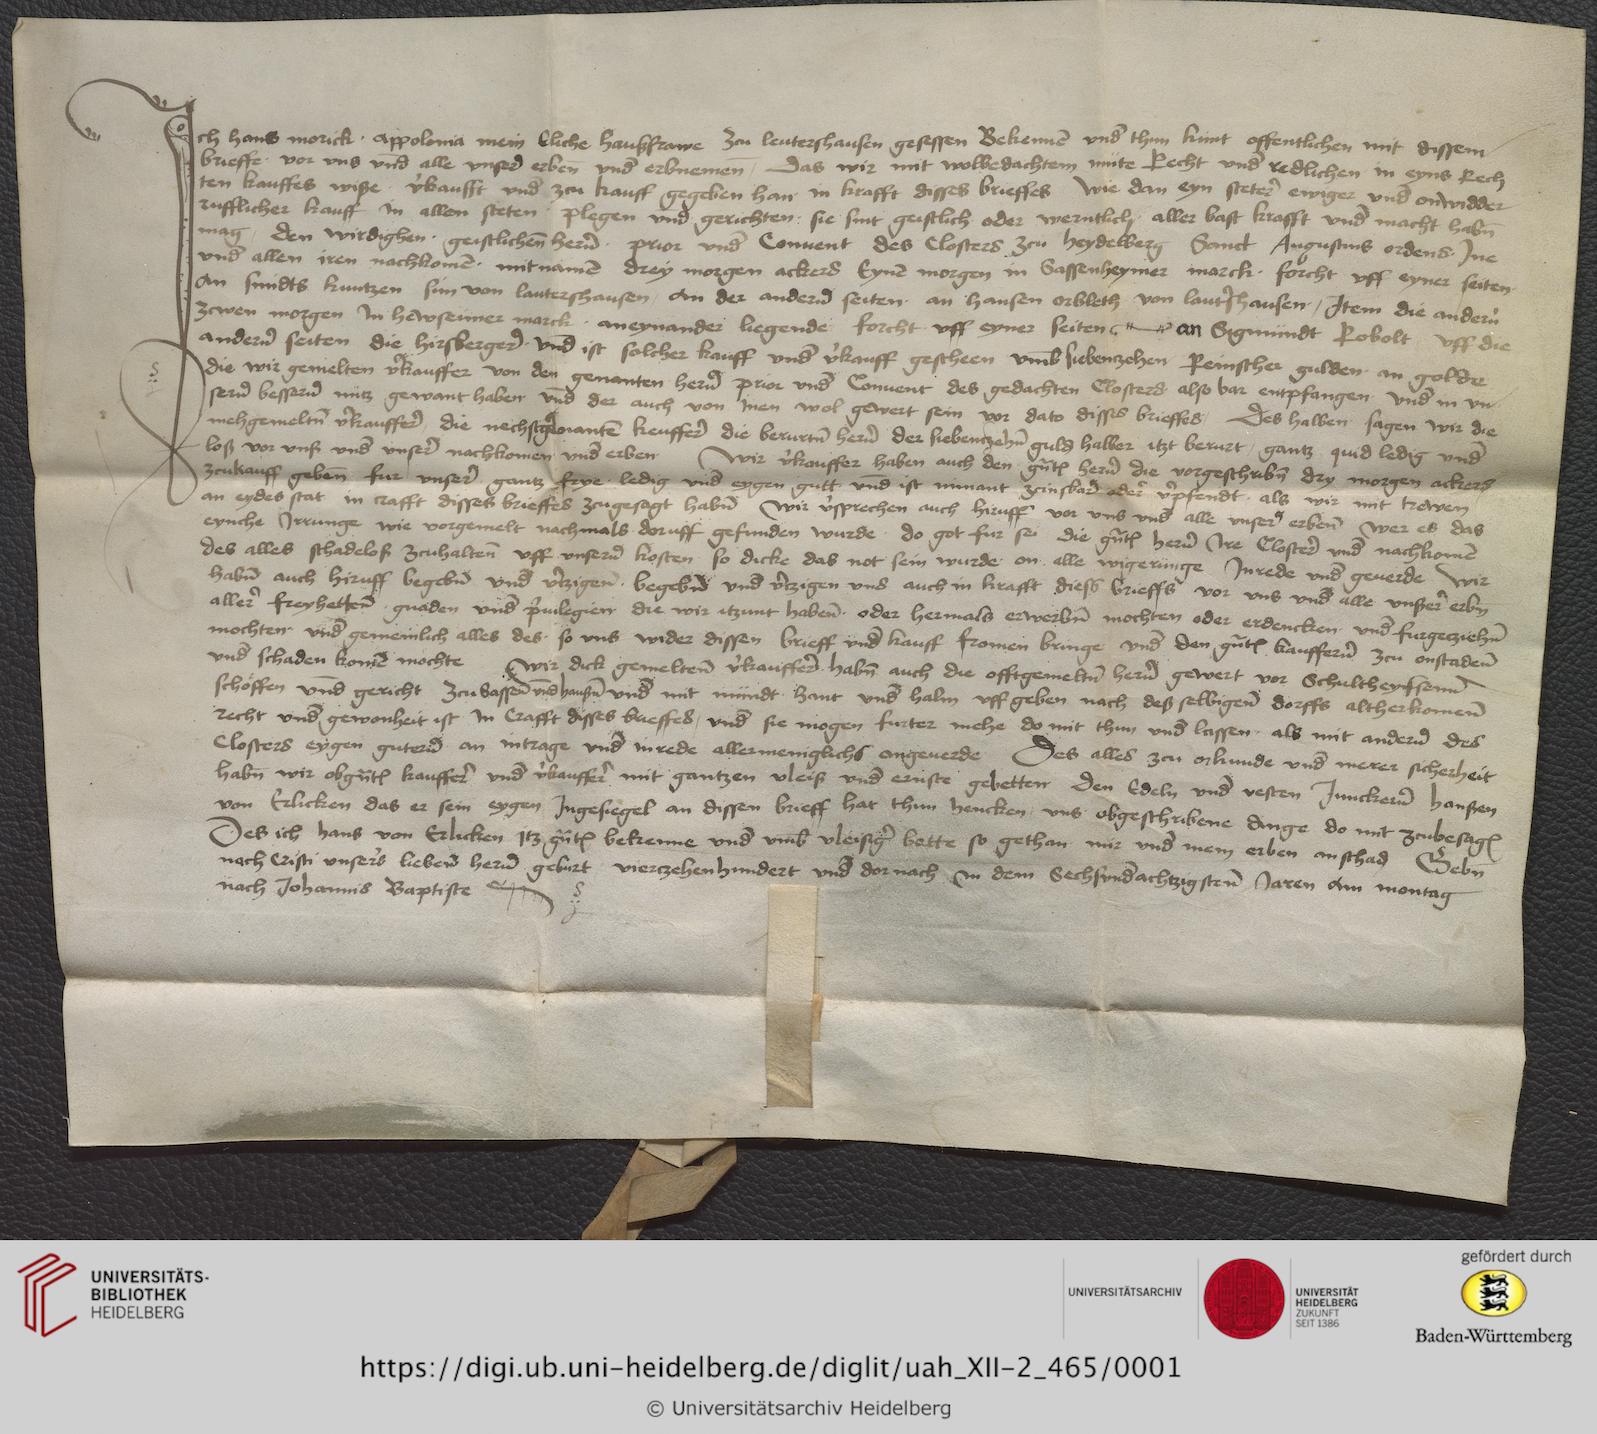 Ich hans morick · Appolonia mein Eliche haußfrawe zcu leutershausen gesessen Bekennē vnd thun kunt offentlichen mit dissem
brieffe · vor vns vnd alle vnser erben vnd erbnemen · Das wir mit wolbedachtem mute Recht vnd redlichen in eyns Rech
ten kauffes wiße v'kaufft vnd zcu kauff gegeben han in krafft disses brieffes Wie dan eyn steter ewiger vnd onwidder
rufflicher kauff in allen steten · plegen vnd gerichten · sie sint geistlich oder werntlich · aller bast krafft vnd macht habn
mag · den wirdighen · geistlichen hern · prior vnd Conuent des Closters zcu heydelberg Sanct Augustins ordens · Jne
vnd allen iren nachkomē · mitnamē drey morgen ackers Eynē morgen in Sassenheymer marck · forcht vff eyner seiten
An smidts kuntzen sun von lautershausen · An der andern seiten · an hansen orbleth von lautershausen · Item die andern
zcwen morgen In hewseimer marck · aneynander liegende forcht vff eyner seiten an Sigmundt Robolt vff die
andern seiten die hirsberger · vnd ist solcher kauff vnd v'kauff gescheen vmb siebenzehen Reinscher gulden · an golde
die wir gemelten v'kauffer von den genanten hern prior vnd Conuent des gedachten Closters also bar entpfangen vnd in vn
sern bessern nutz gewant haben vnd der auch von jnen wol gewert sein vor dato disses brieffes · Des halben sagen wir die
mehgemeltn v'kauffer, die nechstgenantē keuffer die berurtn hern der siebenzehn guld halber itzt berurt, gantz quid ledig vnd
loß vor vnß vnd vnser nachkomen vnd erben Wir v'kauffer haben auch den gn̄tē hern die vorgeschribn dry morgen ackers
zcukauff geben fur vnser gantz frye ledig vnd eygen gutt vnd ist nimant zcinsbar oder v'pfendt · als wir mit trewen
an eydes stat in crafft disses brieffes zcugesagt habn Wir v'sprechen auch hiruff vor vns vnd alle vnser erben Wer es das
eyniche Jrrunge wie vorgemelt nachmals doruff gefunden wurde · do got fur sei die gn̄tē hern Jre Closter vnd nachkomē
des alles schadeloß zcuhalten vff vnsern kosten so dicke das not sein wurde on alle wigerunge Jnrede vnd geuerde Wir
habn auch hiruff begebn vnd v'tzigen · begebn vnd v'tzigen vns auch in krafft dieß brieffs vor vns vnd alle vnßer erbn
aller freyhetten · gnaden vnd p'uilegien die wir itzunt haben · oder hermals erwerbn mochten oder erdencken vnd furgeziehn
mochten vnd gemeinlich alles des · so vns wider dissen brieff vnd kauff fromen bringe vnd den gn̄tē kauffern zcu onstaden
vnd schaden komē mochte Wir dick gemelten v'kauffer habn auch die offtgemeltn hern gewert vor Schultheyssenn
schöffen vnd gericht zcu Sassen vnd hausn vnd mit mundt hant vnd halm vffgeben nach deß selbigen dorffs altherkomen
recht vnd gewonheit ist In Crafft disses brieffes, vnd sie mogen furter mehe do mit thun vnd lassen als mit andern des
Closters eygen gutern an intrage vnd inrede allermeniglichs ongeuerde Des alles zcu orkunde vnd merer sicherheit
habn wir obgn̄tē kauffer vnd v'kauffer mit gantzen vleiß vnd ernste gebetten den Edeln vnd vesten Junckern hanßen
von Erlicken das er sein eygen Ingesiegel an dissen brieff hat thun hencken vns obgeschribene dinge do mit zcubesagē
Des ich hans von Erlicken itz gn̄tē bekenne vnd vmb vleisiger bette so gethan mir vnd mein erben an schad Gebn
nach Cristi vnsers lieben hern geburt vierczehenhundert vnd dornach in dem Sechsvndachtzigsten Jaren Am montag
nach Johannis Baptiste
UNIVERSITÄTS-
BIBLIOTHEK
HEIDELBERG
UNIVERSITÄTSARCHIV
UNIVERSITÄT
HEIDELBERG
ZUKUNFT
SEIT 1386
gefördert durch
Baden-Württemberg
https://digi.ub.uni-heidelberg.de/diglit/uah_XII-2_465/0001
© Universitätsarchiv Heidelberg